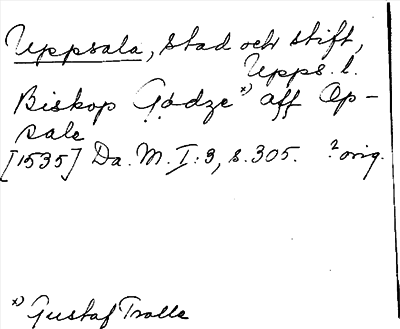 Uppsala, stad och stift,
Upps. l.
Biskop Gødze *) aff Op-
sale
[1535] Da. M. I:3, s. 305. ? orig.
*) Gustaf Trolle